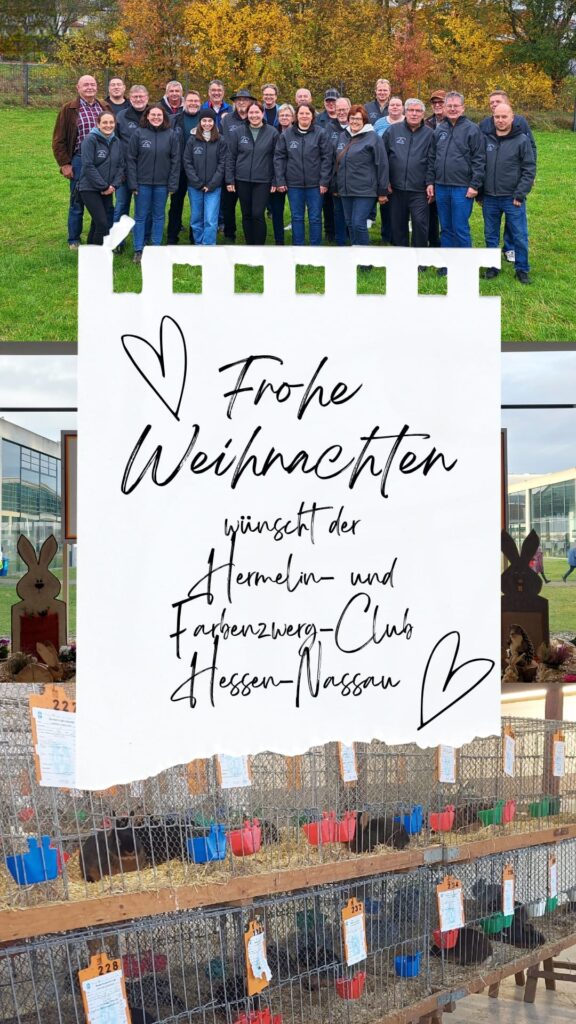 Frohe
Weihnachten
wünscht der
Hermelin- und
Farbenzwerg-Club
Hessen-Nassau
227
228
232
234